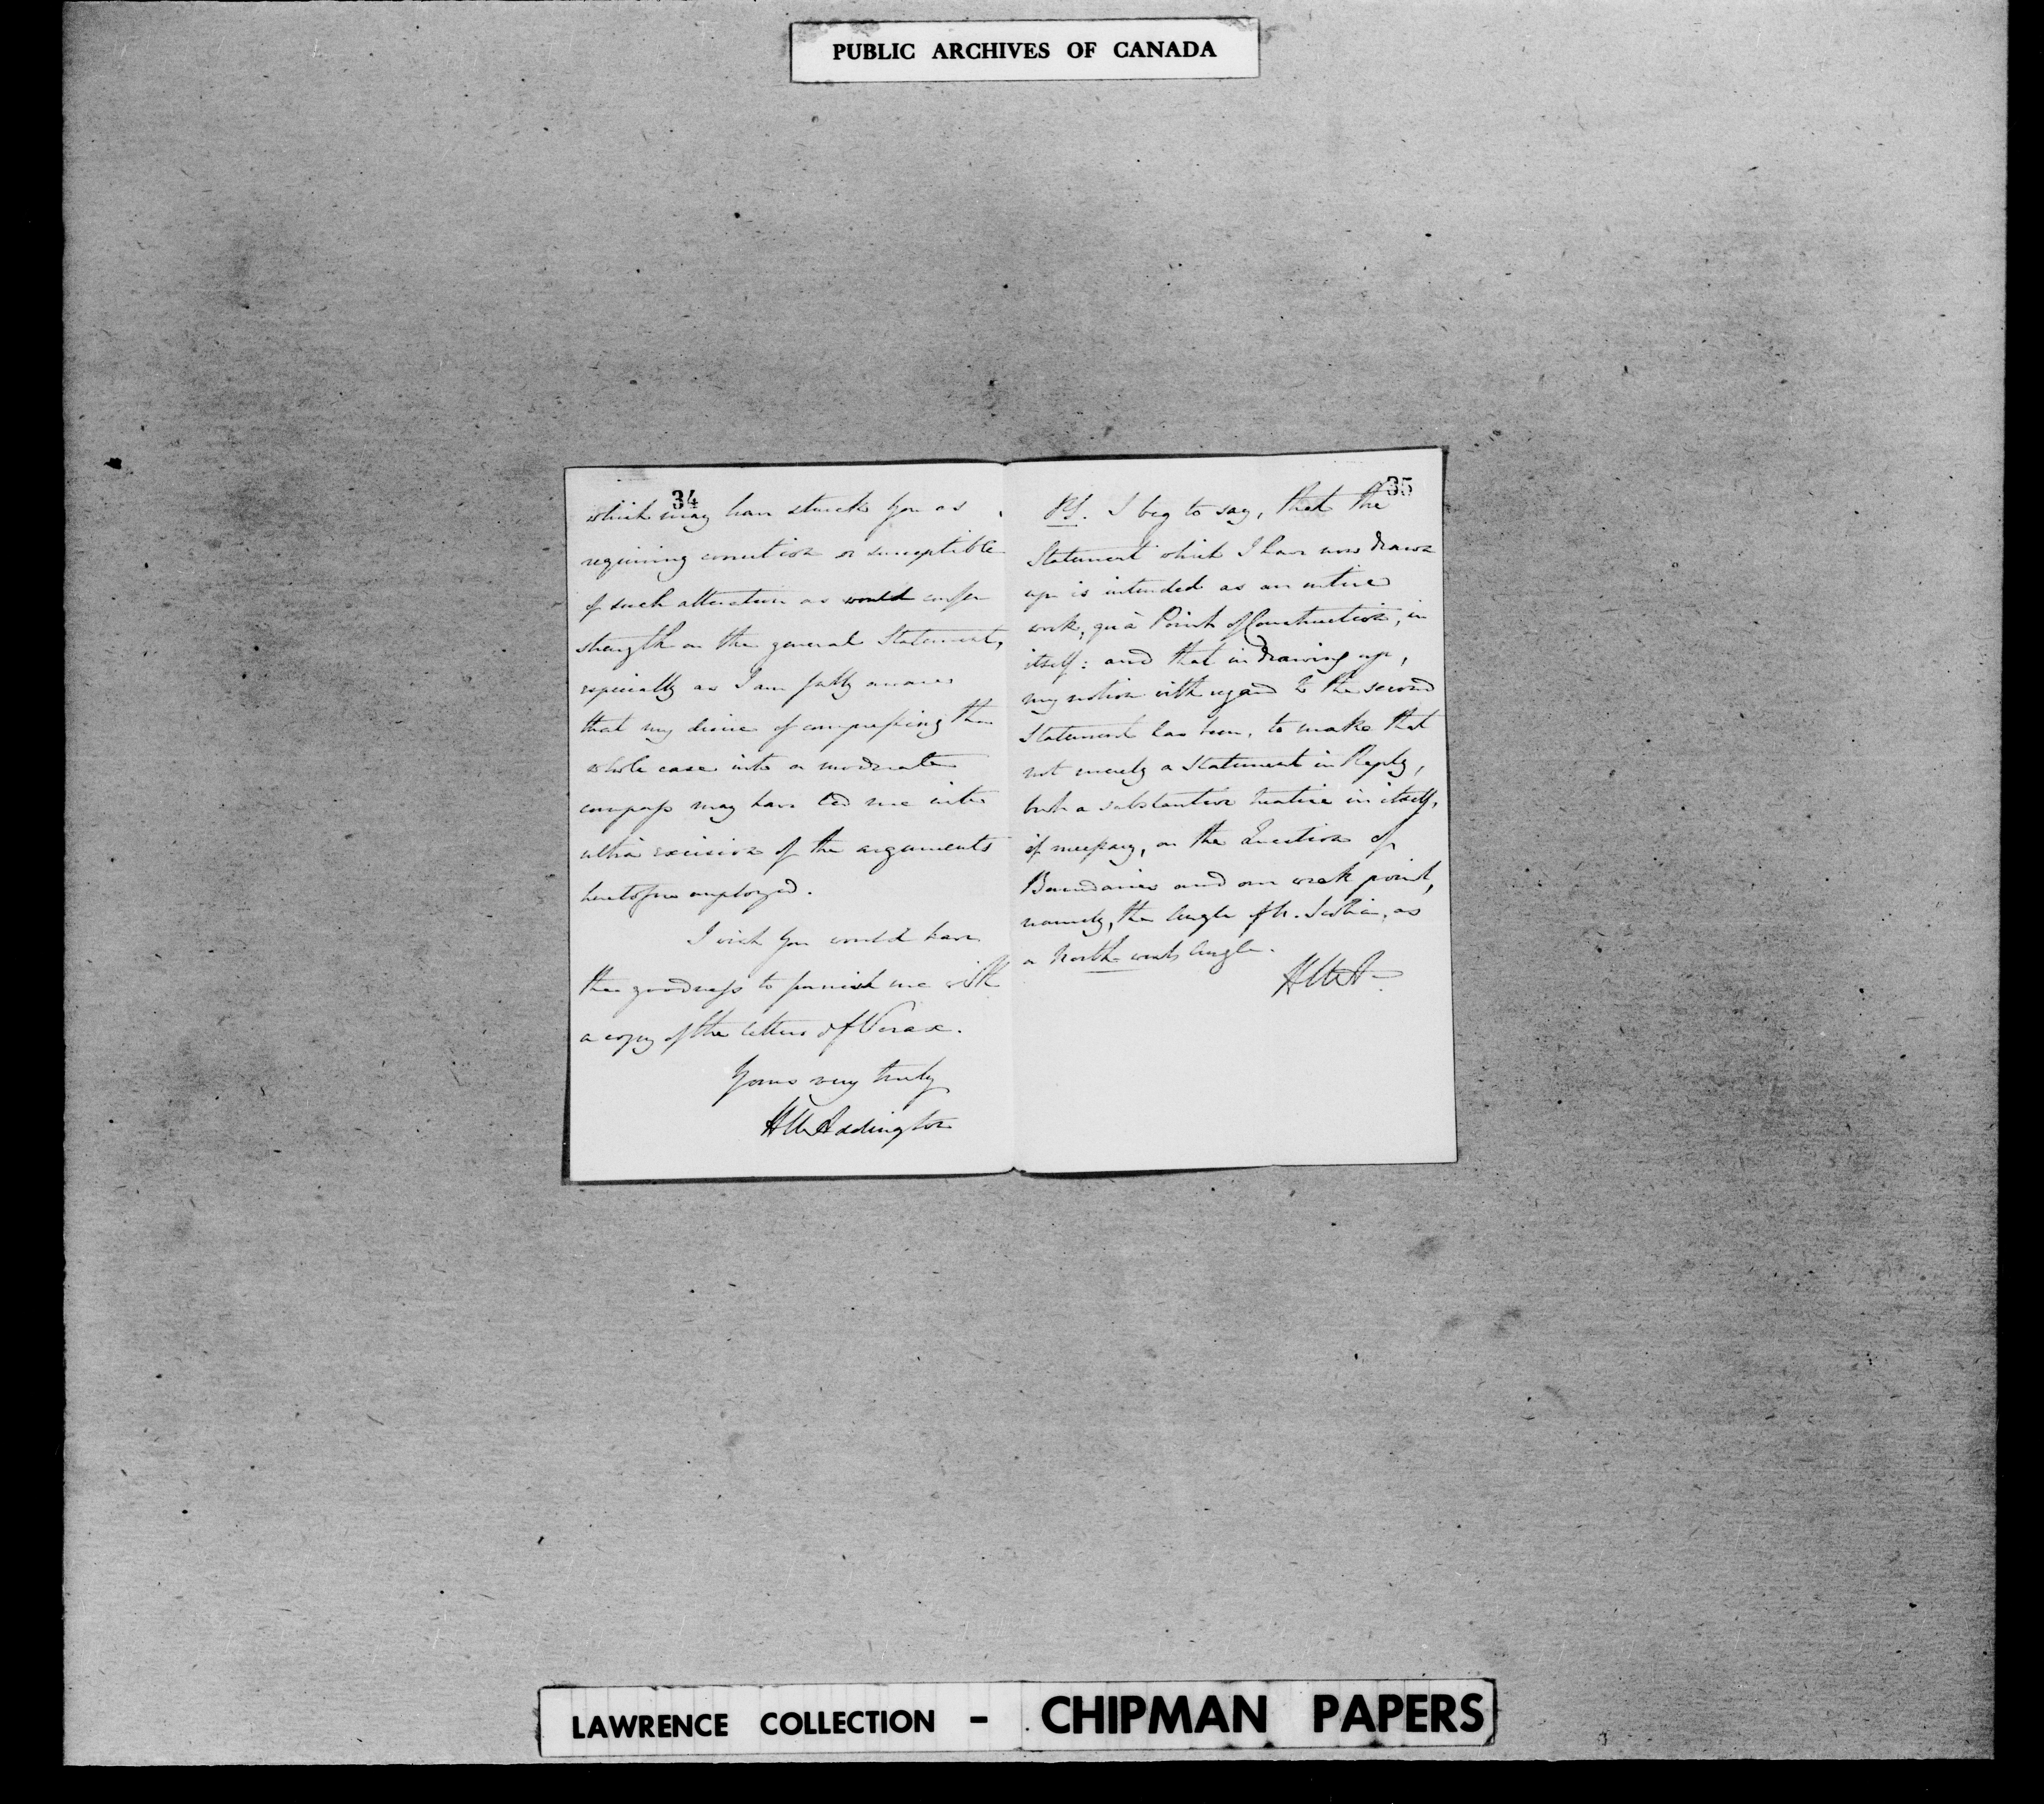 PUBLIC ARCHIVES OF CANADA
34
which may have struck you as
requiring correction or susceptible
of such alteration as would confer
strength on the general Statement,
especially as I am fully aware
that my desire of compressing the
whole case into a moderate
compass may have led me into
ultra excision of the arguments
heretofore employed.
I wish you would have
the goodness to furnish me with
a copy of the letters of Verax.
Yours very truly
HUAddington
35
PS. I beg to say, that the
Statement which I have now drawn
up is intended as an entire
work, quà Point of Construction, in
itself: and that in drawing up,
my notion with regard to the second
Statement has been, to make that
not merely a Statement in Reply,
but a substantive treatise in itself,
if necessary, on the Question of
Boundaries and our weak point,
namely, the Angle of N. Scotia, as
a North-west Angle.
HUA
LAWRENCE COLLECTION - CHIPMAN PAPERS